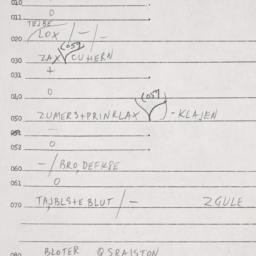 010
0
011
TEJBE
020 LOX/-/-
(059)
030 ZAX CUHERN
031 +
0
040 (059)
050 ZUMERS+PRINKLAX - KLAJEN
051 -
052 0
060 -/BRO,DEEKPE
061 0
070 TAJBLS+E BLUT/- ZGULE
080 BLOTER @SRALSTON